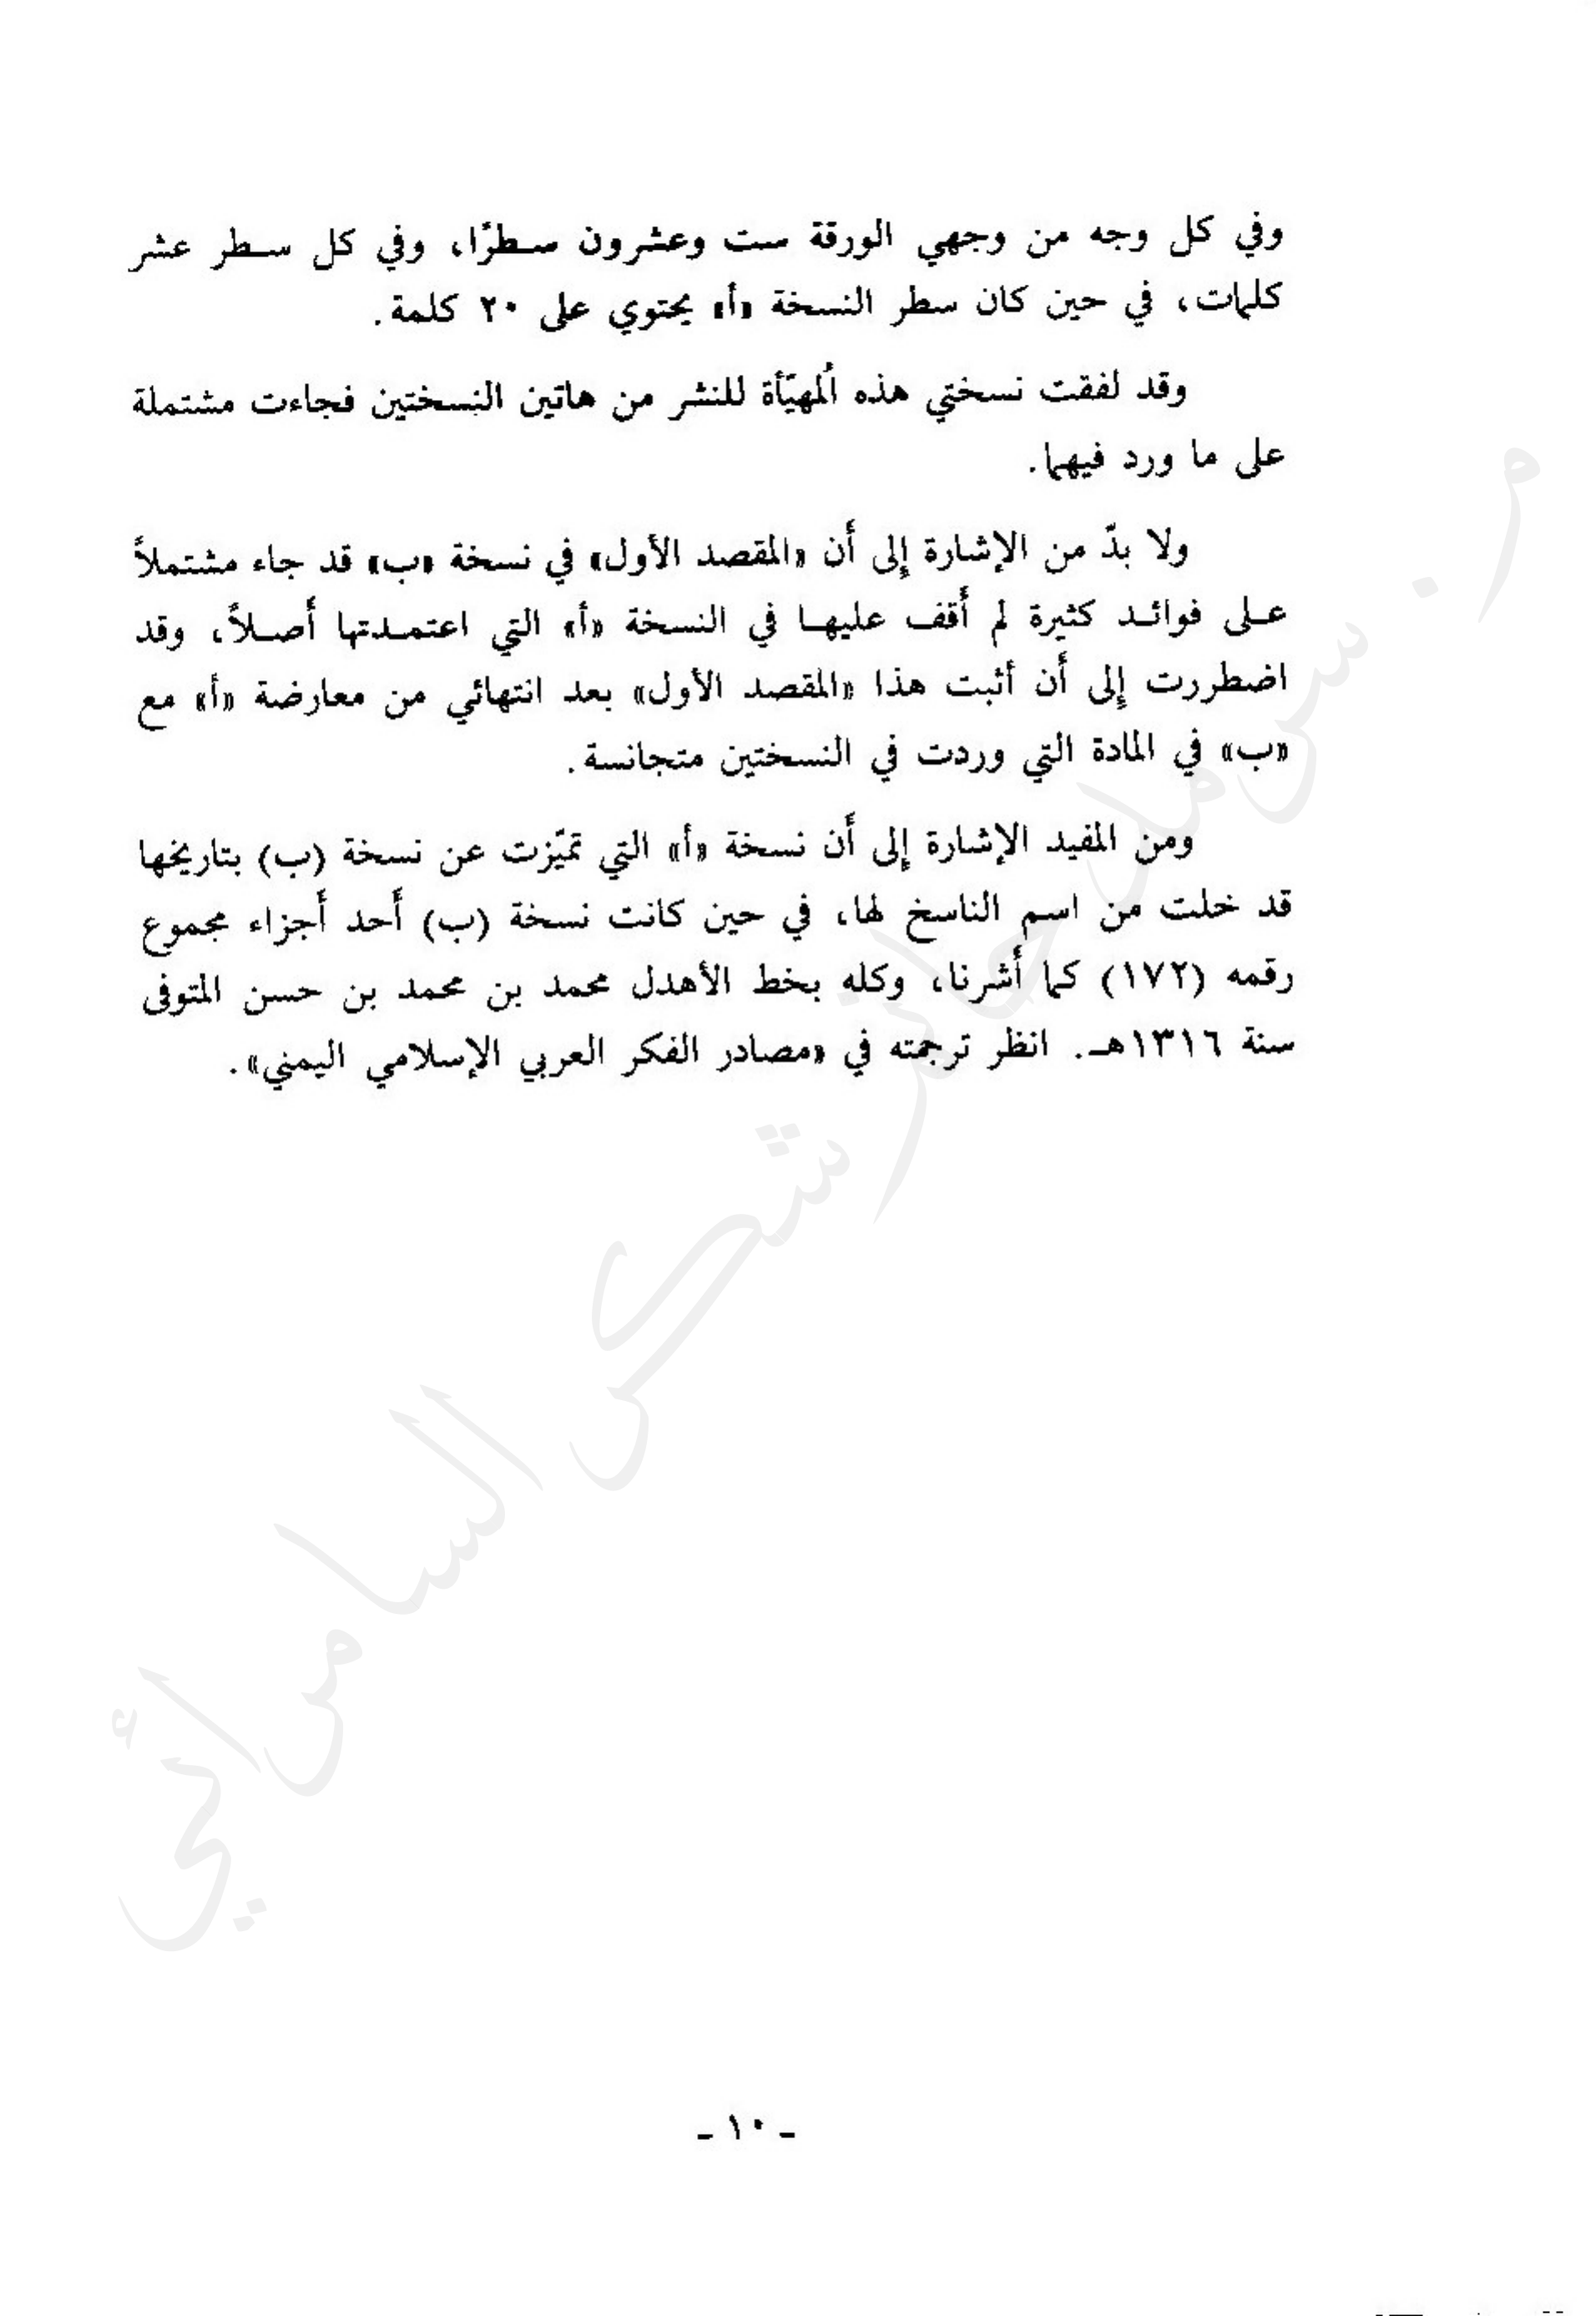 وفي كل وجه من وجهي الورقة ست وعشرون سطرًا، وفي كل سطر عشر
كلمات، في حين كان سطر النسخة «أ» يحتوي على ٢٠ كلمة.
وقد لفقت نسختي هذه المُهيّأة للنشر من هاتين النسختين فجاءت مشتملة
على ما ورد فيهما.
ولا بدّ من الإشارة إلى أن «المقصد الأول» في نسخة «ب» قد جاء مشتملاً
على فوائد كثيرة لم أقف عليها في النسخة «أ» التي اعتمدتها أصلاً، وقد
اضطررت إلى أن أثبت هذا «المقصد الأول» بعد انتهائي من معارضة «أ» مع
«ب» في المادة التي وردت في النسختين متجانسة.
ومن المفيد الإشارة إلى أن نسخة «أ» التي تميّزت عن نسخة (ب) بتاريخها
قد خلت من اسم الناسخ لها، في حين كانت نسخة (ب) أحد أجزاء مجموع
رقمه (١٧٢) كما أشرنا، وكله بخط الأهدل محمد بن محمد بن حسن المتوفى
سنة ١٣١٦هـ. انظر ترجمته في «مصادر الفكر العربي الإسلامي اليمني».
ـ ١٠ ـ